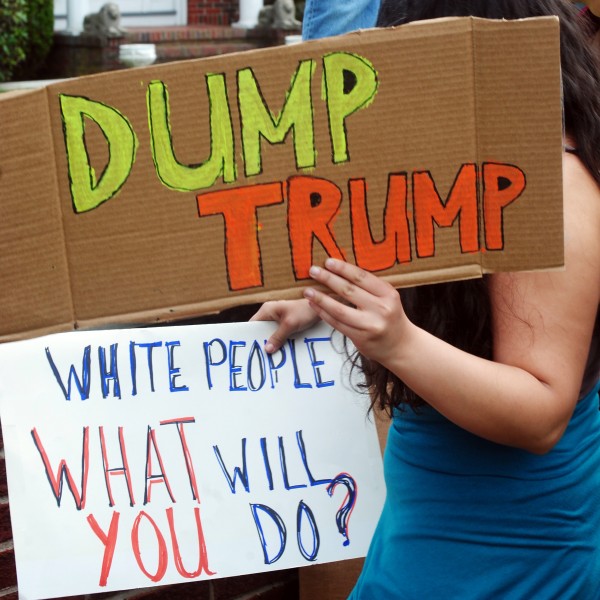 DUMP
TRUMP
WHITE PEOPLE
WHAT WILL
YOU DO?